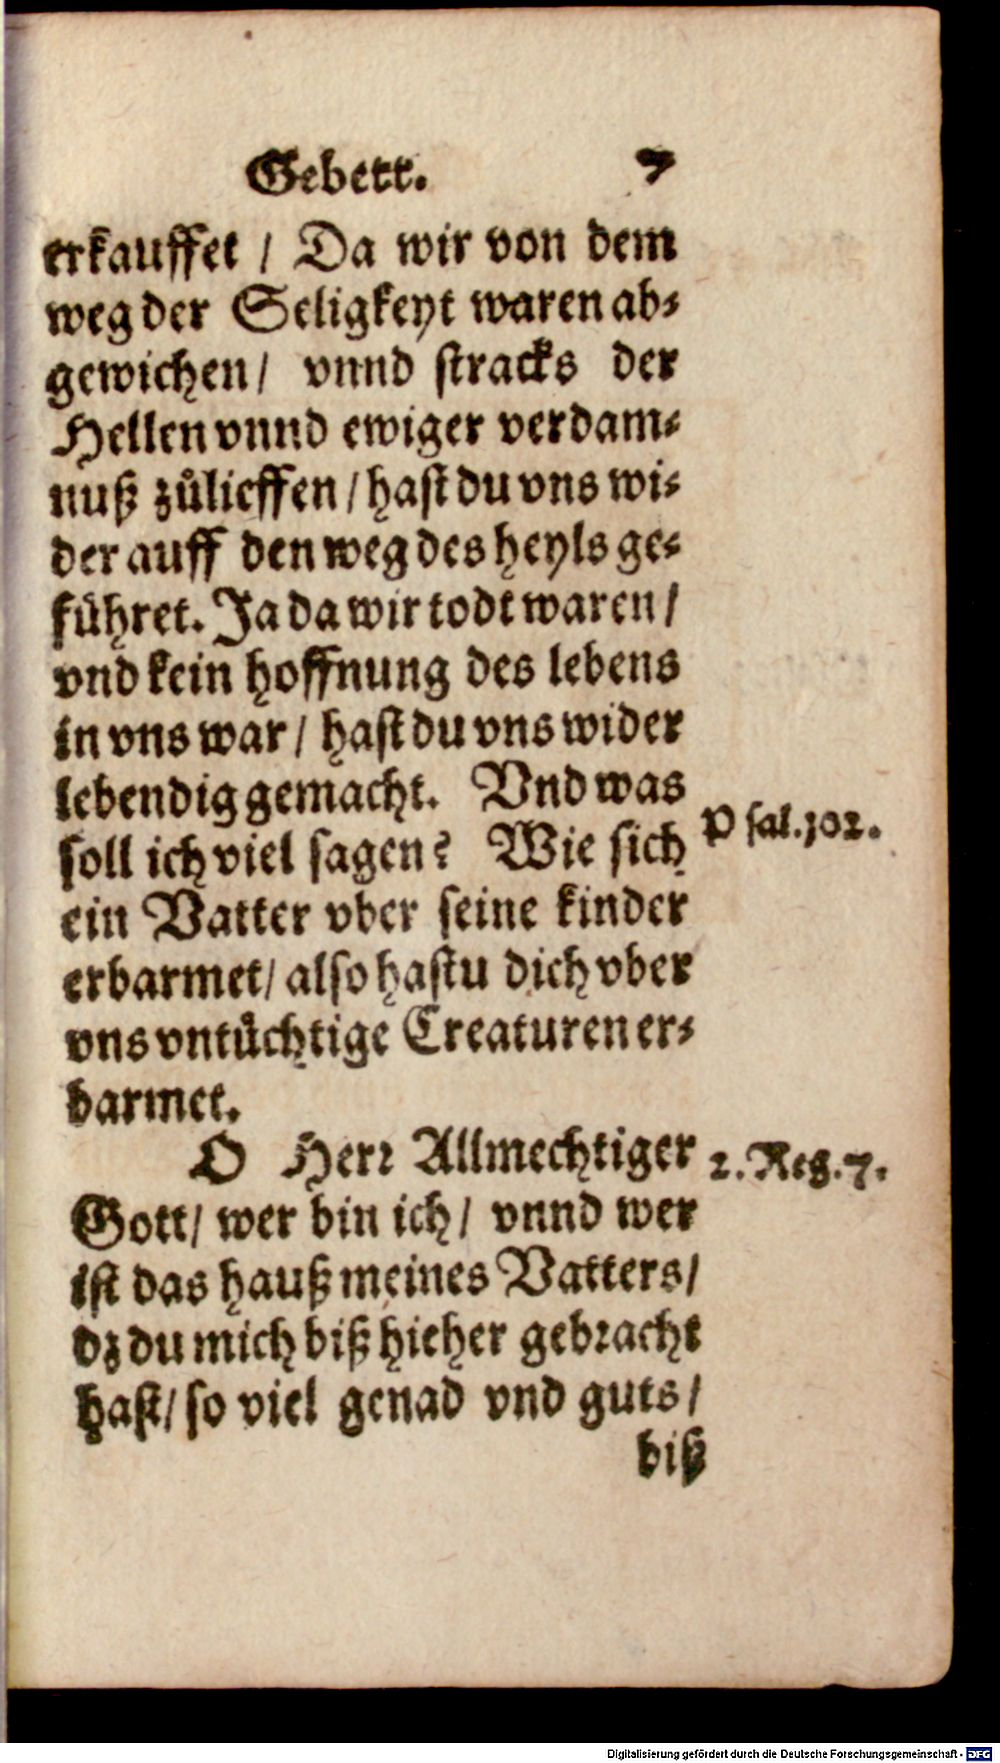 Gebett. 7
erkauffet / Da wir von dem
weg der Seligkeyt waren ab⸗
gewichen / vnnd stracks der
Hellen vnnd ewiger verdam⸗
nuß zůlieffen / hast du vns wi⸗
der auff den weg des heyls ge⸗
führet. Ja da wir todt waren /
vnd kein hoffnung des lebens
in vns war / hast du vns wider
lebendig gemacht. Vnd was
soll ich viel sagen? Wie sich
Psal. 102.
ein Vatter vber seine kinder
erbarmet / also hastu dich vber
vns vntüchtige Creaturen er⸗
barmet.
O Herr Allmechtiger
2. Reg. 7.
Gott / wer bin ich / vnnd wer
ist das hauß meines Vatters /
dz du mich biß hieher gebracht
hast / so viel genad vnd guts /
biß
Digitalisierung gefördert durch die Deutsche Forschungsgemeinschaft - DFG